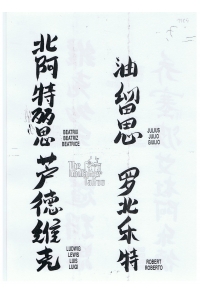 北阿特丽思
BEATRIX
BEATRIZ
BEATRICE
芦德维克
LUDWIG
LEWIS
LUIS
LUIGI
油留思
JULIUS
JULIO
GIULIO
罗北乐特
ROBERT
ROBERTO
The